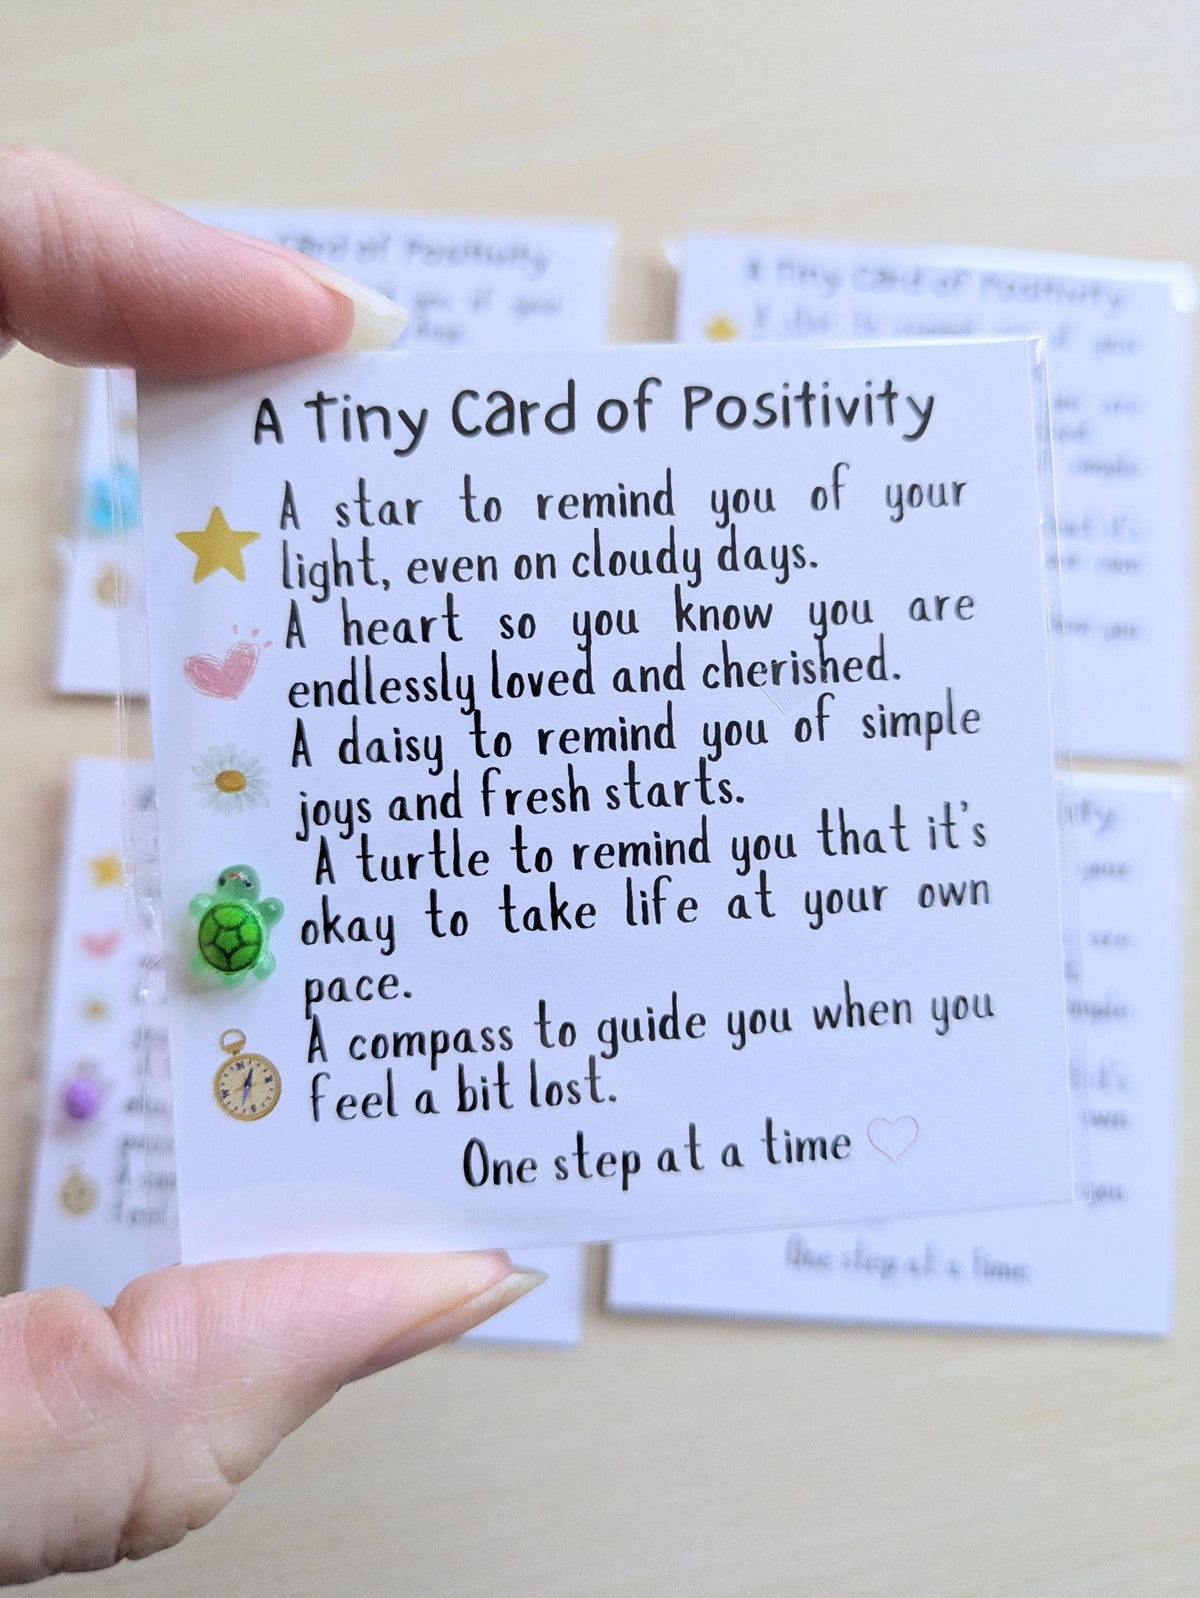 A Tiny Card of Positivity
A star to remind you of your
light, even on cloudy days.
A heart so you know you are
endlessly loved and cherished.
A daisy to remind you of simple
joys and fresh starts.
A turtle to remind you that it's
okay to take life at your own
pace.
A compass to guide you when you
feel a bit lost.
One step at a time
Card of Positivity
you of your
A Tiny Card of Positivity
A star to remind you of your
simple
One step at a time